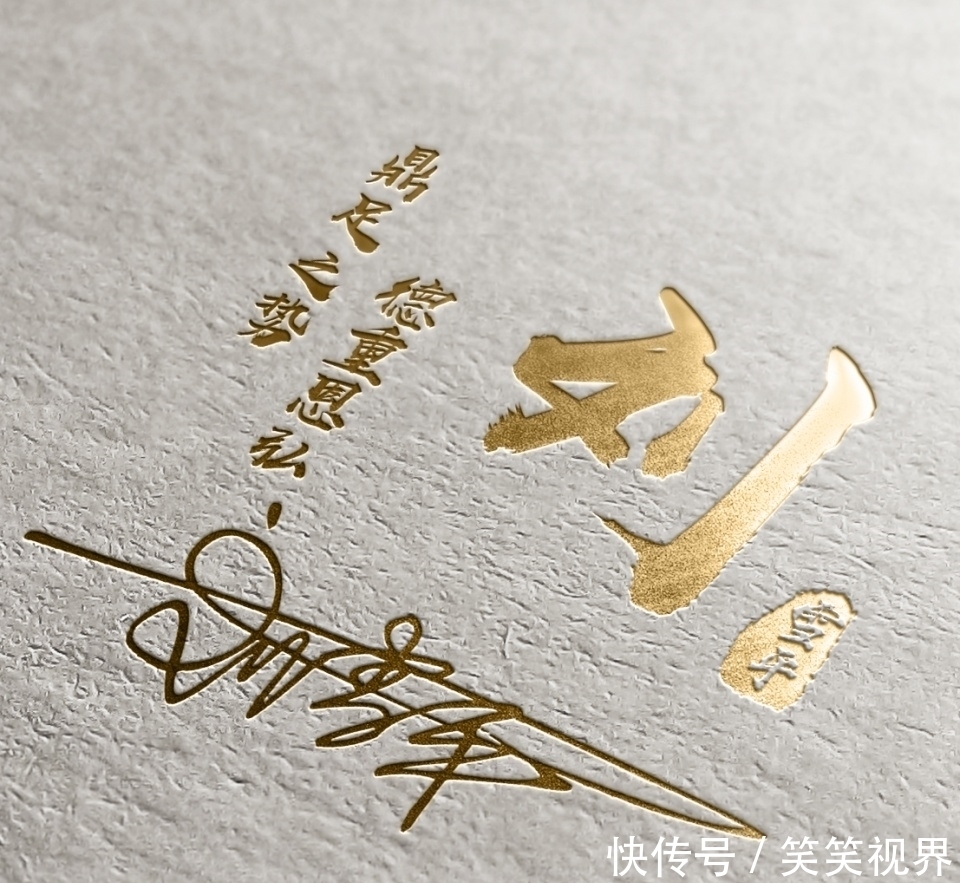 鼎足之势
德重恩弘
刘
雪平
快传号 / 笑笑视界